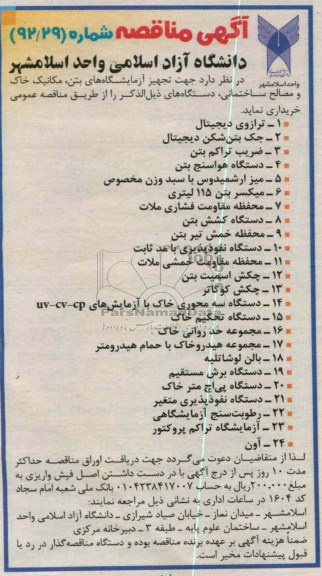 آگهی مناقصه شماره (۹۲/۲۹)
دانشگاه آزاد اسلامی واحد اسلامشهر
واحد اسلامشهر
در نظر دارد جهت تجهیز آزمایشگاه‌های بتن، مکانیک خاک
و مصالح ساختمانی، دستگاه‌های ذیل‌الذکر را از طریق مناقصه عمومی
خریداری نماید.
۱ ـ ترازوی دیجیتال
۲ ـ جک بتن‌شکن دیجیتال
۳ ـ ضریب تراکم بتن
۴ ـ دستگاه هواسنج بتن
۵ ـ میز ارشمیدوس با سبد وزن مخصوص
۶ ـ میکسر بتن ۱۱۵ لیتری
۷ ـ محفظه مقاومت فشاری ملات
۸ ـ دستگاه کشش بتن
۹ ـ محفظه خمش تیر بتن
۱۰ ـ دستگاه نفوذپذیری با مد ثابت
۱۱ ـ محفظه مقاومت خمشی ملات
۱۲ ـ چکش اسمیت بتن
۱۳ ـ چکش کوکاتر
۱۴ ـ دستگاه سه محوری خاک با آزمایش‌های uv-cv-cp
۱۵ ـ دستگاه تحکیم خاک
۱۶ ـ مجموعه حد روانی خاک
۱۷ ـ مجموعه هیدروخاک با حمام هیدرومتر
۱۸ ـ بالن لوشاتلیه
۱۹ ـ دستگاه برش مستقیم
۲۰ ـ دستگاه پی‌اچ متر خاک
۲۱ ـ دستگاه نفوذپذیری متغیر
۲۲ ـ رطوبت‌سنج آزمایشگاهی
۲۳ ـ آزمایشگاه تراکم پروکتور
۲۴ ـ آون
لذا از متقاضیان دعوت می‌گردد جهت دریافت اوراق مناقصه حداکثر
مدت ۱۰ روز پس از درج آگهی با در دست داشتن اصل فیش واریزی به
مبلغ ۲۰۰,۰۰۰ ریال به حساب ۰۱۰۴۳۳۸۴۱۷۰۰۷ بانک ملی شعبه امام سجاد
کد ۱۶۰۴ در ساعات اداری به نشانی ذیل مراجعه نمایند:
اسلامشهر ـ میدان نماز ـ خیابان صیاد شیرازی ـ دانشگاه آزاد اسلامی واحد
اسلامشهر ـ ساختمان علوم پایه ـ طبقه ۳ ـ دبیرخانه مرکزی
ضمناً هزینه آگهی بر عهده برنده مناقصه بوده و دستگاه مناقصه‌گذار در رد یا
قبول پیشنهادات مخیر است.